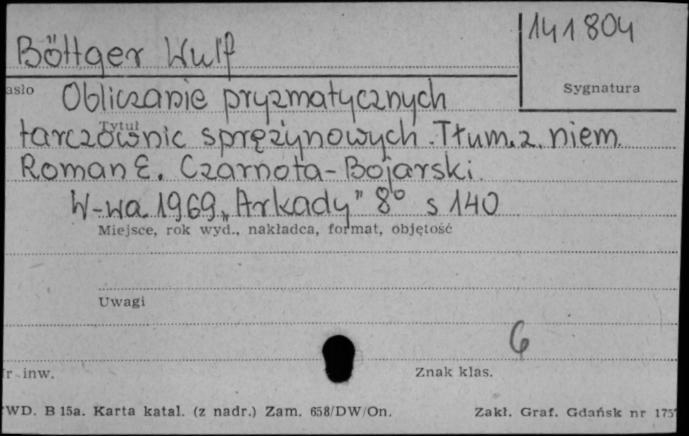 141804
Böttger Wulf
asło
Sygnatura
Obliczanie pryzmatycznych
Tytuł
tarczownic sprężynowych. Tłum. z niem.
Roman E. Czarnota-Bojarski.
W-wa 1969 „Arkady" 8° s 140
Miejsce, rok wyd., nakładca, format, objętość
Uwagi
6
r inw.
Znak klas.
WD. B 15a. Karta katal. (z nadr.) Zam. 658/DW/On.
Zakł. Graf. Gdańsk nr 175